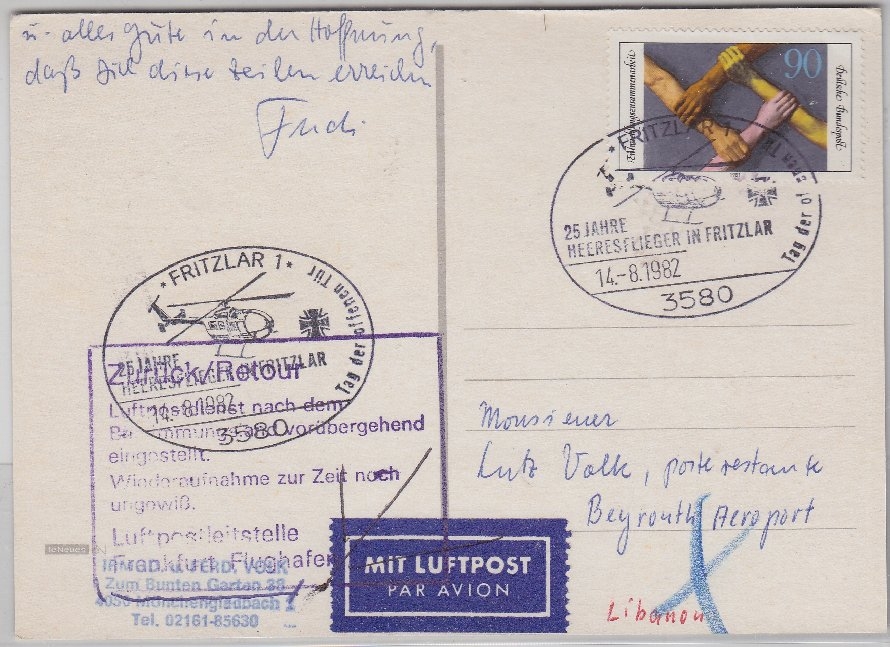 u. alles Gute in der Hoffnung,
daß Dich diese Zeilen erreichen
90
Deutsche Bundespost
Entwicklungszusammenarbeit
* FRITZLAR 1
Tag der offenen Tür
25 JAHRE
HEERESFLIEGER IN FRITZLAR
14.-8.1982
3580
* FRITZLAR 1 *
Tag der offenen Tür
25 JAHRE
HEERESFLIEGER IN FRITZLAR
14.-8.1982
3580
Zurück/Retour
Luftpostdienst nach dem
Bestimmungsland vorübergehend
eingestellt.
Wiederaufnahme zur Zeit noch
ungewiß.
Luftpostleitstelle
Frankfurt Flughafen
IRMGD. u. FERD. VOLK
Zum Bunten Garten 38
4050 Mönchengladbach 1
Tel. 02161-85630
MIT LUFTPOST
PAR AVION
Monsieur
Lutz Volk, poste restante
Beyrouth Aeroport
Libanon
teNeues